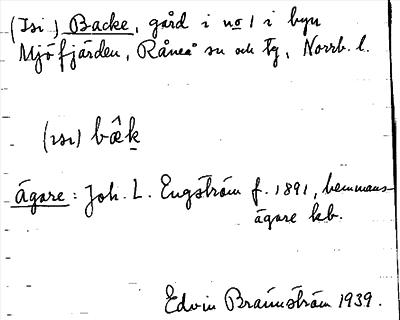 (Isi) Backe, gård i no 1 i byn
Mjöfjärden, Råneå sn och tg, Norrb. l.
(ısı) bæ̂k̠
ägare: Joh. L. Engström f. 1891, hemmans-
ägare kb.
Edvin Brännström 1939.